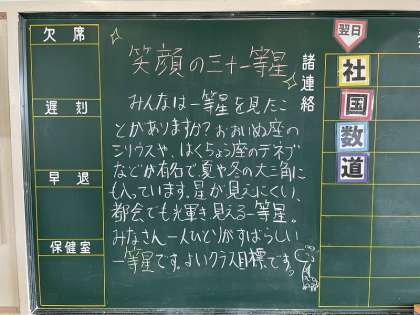 欠席
遅刻
早退
保健室
笑顔の三十一等星
みんなは一等星を見たこ
とがありますか？おおいぬ座の
シリウスや、はくちょう座のデネブ
などが有名で夏や冬の大三角に
も入っています。星が見えにくい、
都会でも光輝き見える一等星。
みなさん一人ひとりがすばらしい
一等星です。よいクラス目標です。
諸連絡
翌日
社
国
数
道